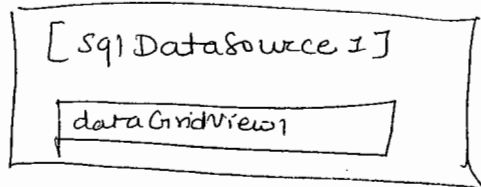 [ Sql DataSource 1 ]
dataGridView1